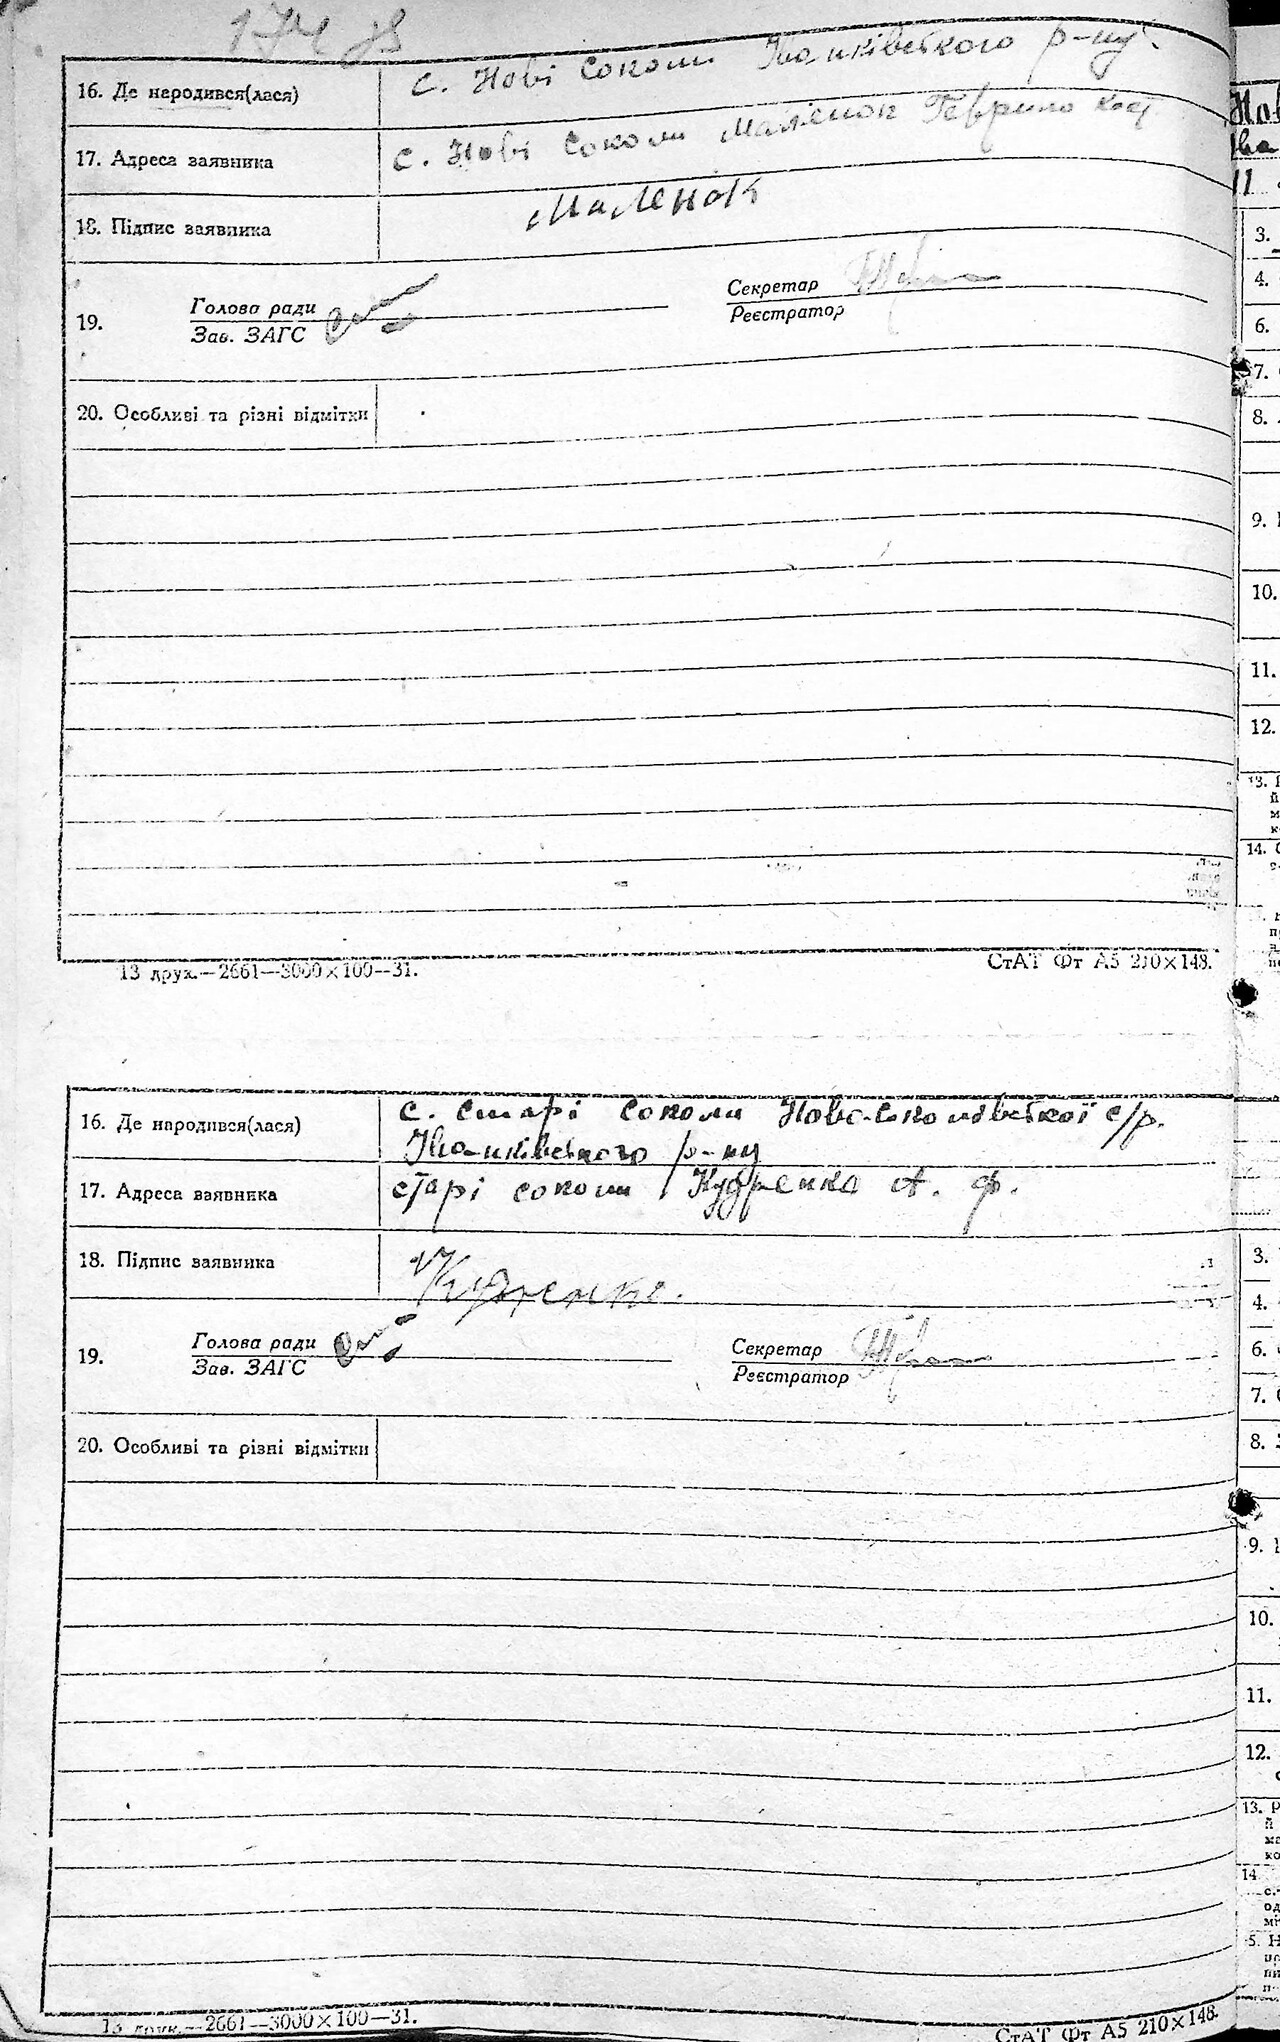 16. Де народився(лася) с. Нові Соколи Іванківського р-ну.
17. Адреса заявника с. Нові Соколи Маленок Гаврило
18. Підпис заявника Маленок
Голова ради Секретар
19.
Зав. ЗАГС Реєстратор
20. Особливі та різні відмітки
13 друк.—2661—3000×100—31. СтАТ Фт А5 210×148.
16. Де народився(лася) с. Старі Соколи Ново-Соколівської с/р.
Іванківського р-ну
17. Адреса заявника старі соколи Кудренко А. Ф.
18. Підпис заявника Кудренко.
Голова ради Секретар
19.
Зав. ЗАГС Реєстратор
20. Особливі та різні відмітки
13 друк.—2661—3000×100—31. СтАТ Фт А5 210×148.
3.
4.
6.
7.
8.
9.
10.
11.
12.
13.
14.
3.
4.
6.
7.
8.
9.
10.
11.
12.
13.
14